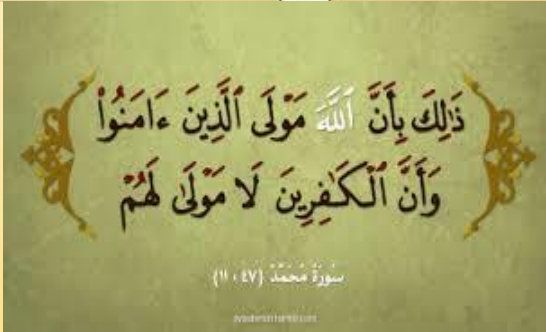 ذَٰلِكَ بِأَنَّ ٱللَّهَ مَوْلَى ٱلَّذِينَ ءَامَنُوا۟
وَأَنَّ ٱلْكَـٰفِرِينَ لَا مَوْلَىٰ لَهُمْ
سُورَةُ مُحَمَّدْ (٤٧ : ١١)